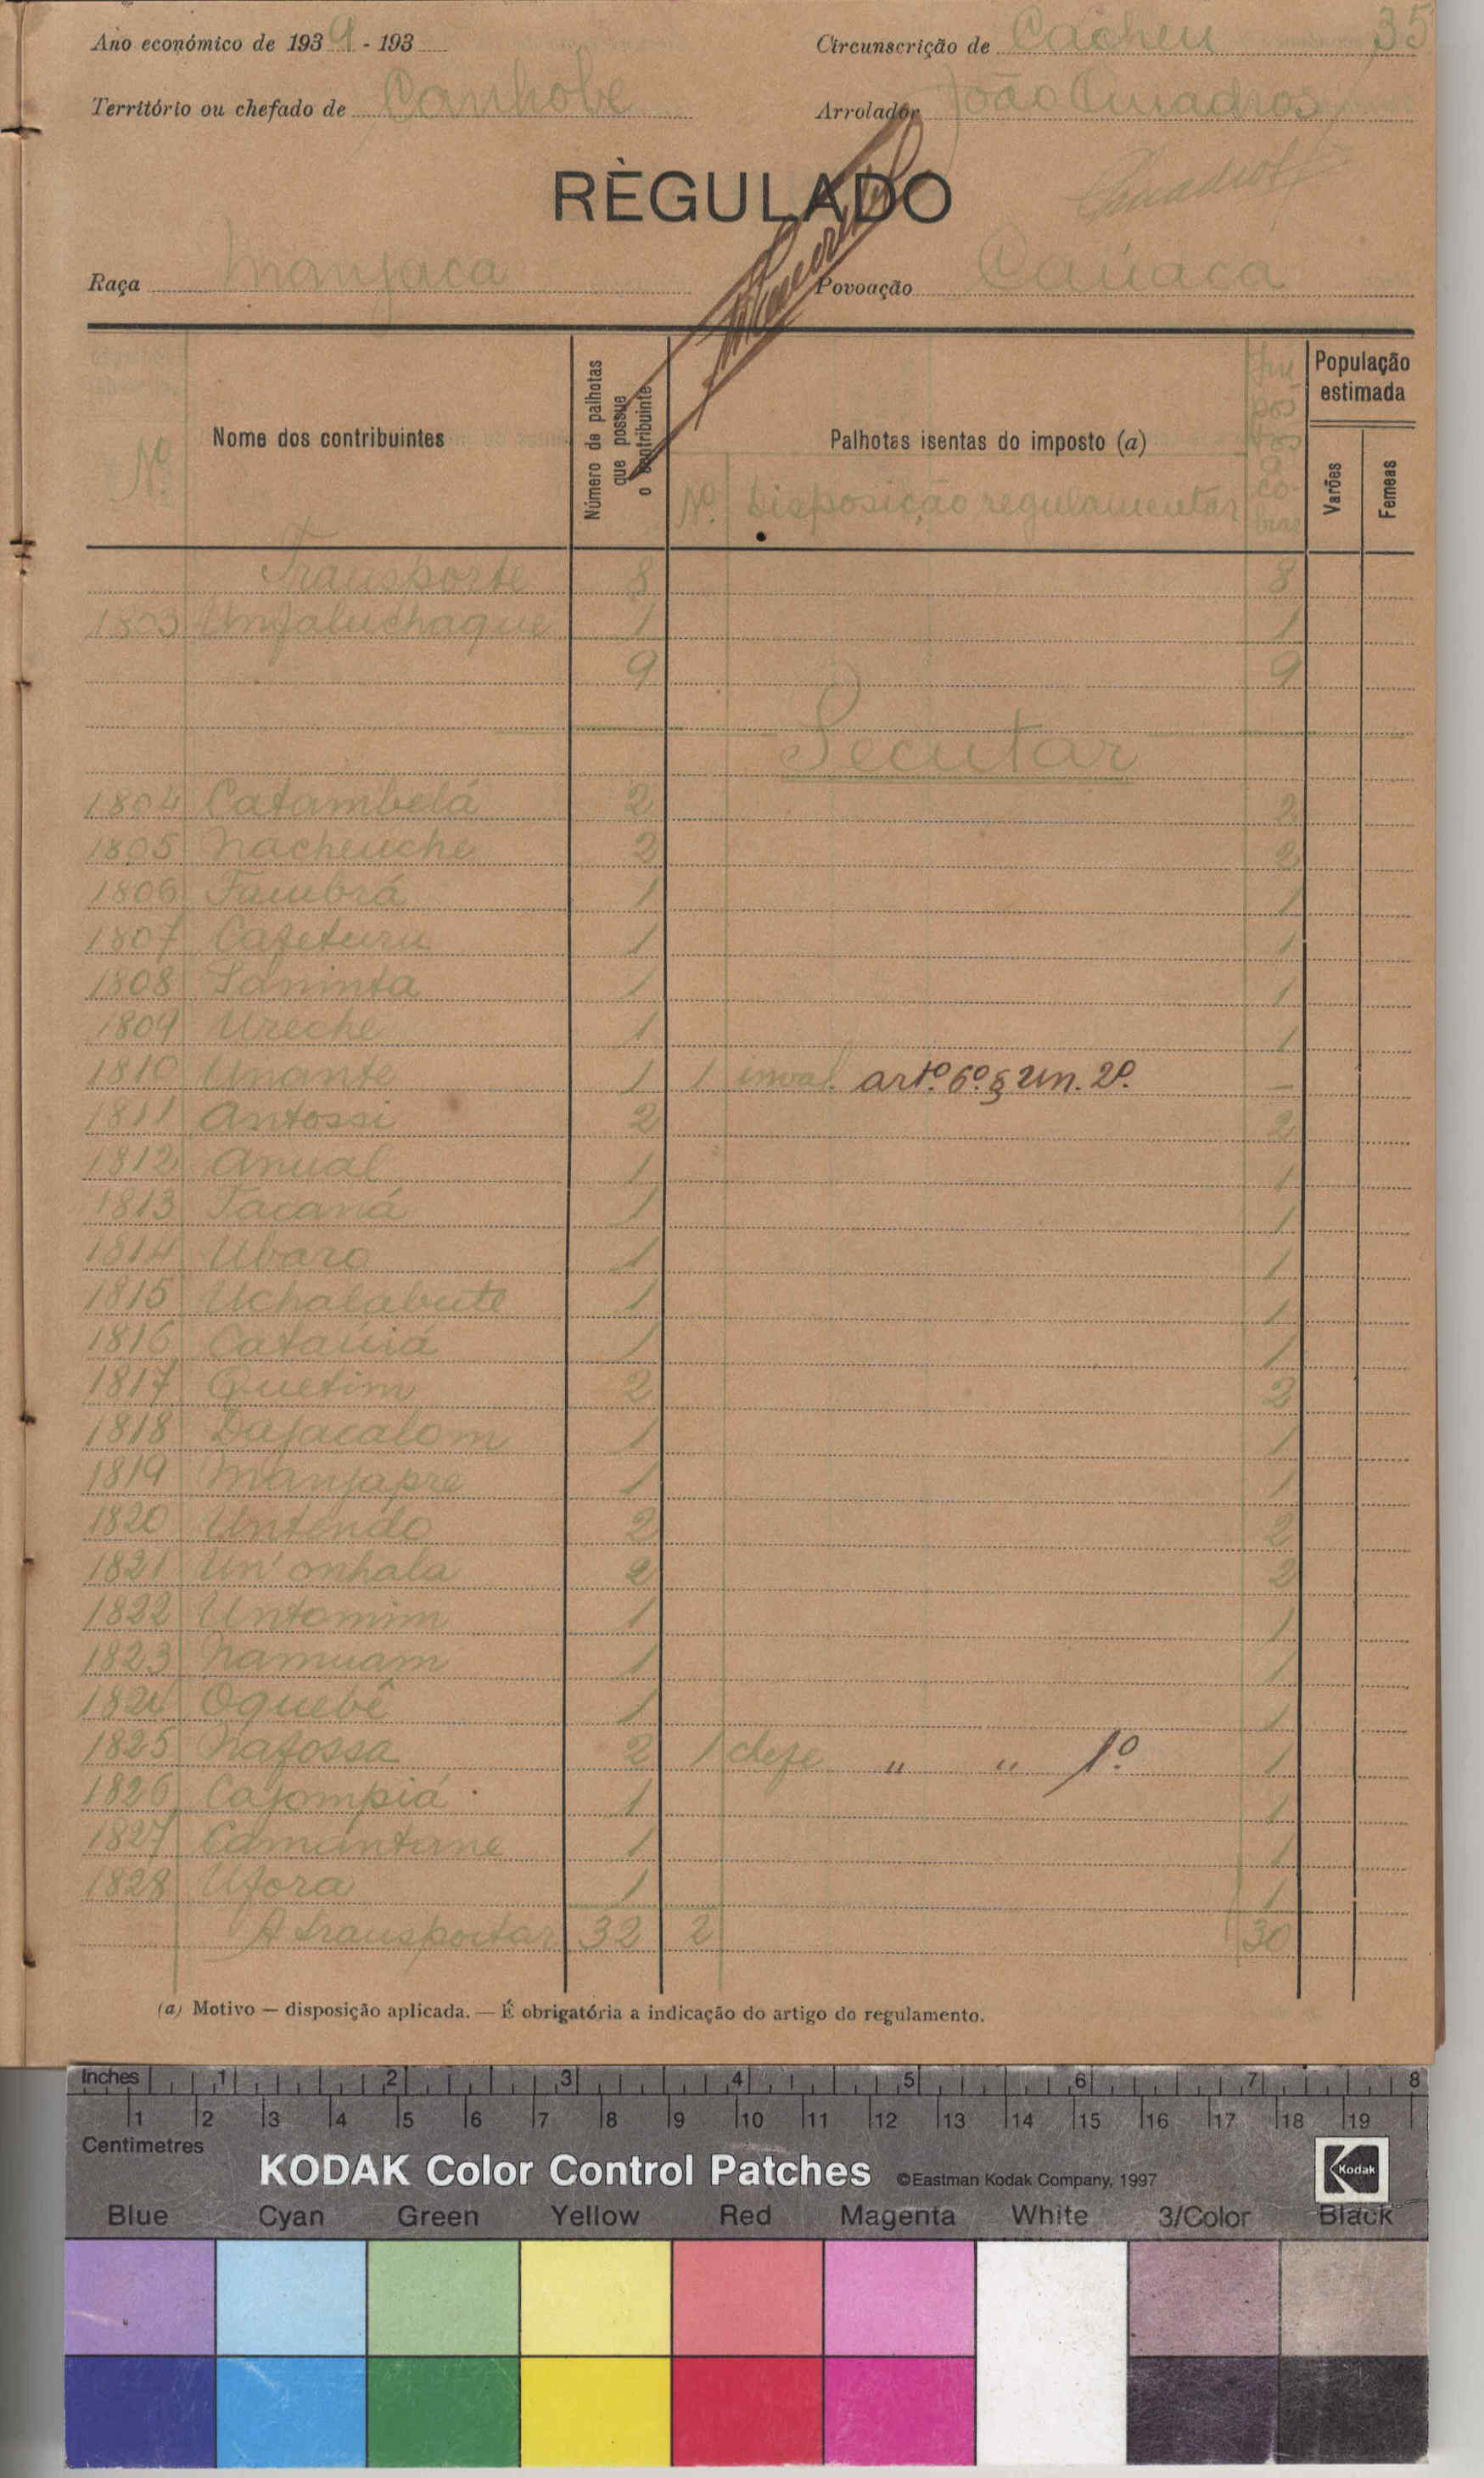 Ano económico de 1939 - 193
Circunscrição de Cacheu 35
Território ou chefado de Canhobe
Arrolador João Quadros
RÈGULADO
Raça Manjaca
Povoação Caúaca
Nº
Nome dos contribuintes
Número de palhotas que possue o contribuinte
Palhotas isentas do imposto (a)
Nº. Disposição regulamentar
Impostos a cobrar
População estimada
Varões
Femeas
Transporte 8 8
1803 Unfaluchaque 1 1
9 9
Pecutar
1804 Catambelá 2 2
1805 Nacheuche 2 2
1806 Faubrá 1 1
1807 Cafeturu 1 1
1808 Saninta 1 1
1809 Ureche 1 1
1810 Unante 1 1 inval. artº. 6º. § un. 2º. —
1811 Antossi 2 2
1812 Anual 1 1
1813 Tacaná 1 1
1814 Ubaro 1 1
1815 Uchalabute 1 1
1816 Cataúiá 1 1
1817 Quetim 2 2
1818 Dafacalom 1 1
1819 Manjapre 1 1
1820 Untendo 2 2
1821 Un'onhala 2 2
1822 Untomim 1 1
1823 Namuam 1 1
1824 Oquebê 1 1
1825 Nafossa 2 1 chefe " " 1º. 1
1826 Cajompiá 1 1
1827 Camantane 1 1
1828 Ufora 1 1
A transportar 32 2 30
(a) Motivo — disposição aplicada. — É obrigatória a indicação do artigo do regulamento.
Inches 1 2 3 4 5 6 7 8
1 2 3 4 5 6 7 8 9 10 11 12 13 14 15 16 17 18 19
Centimetres
KODAK Color Control Patches ©Eastman Kodak Company, 1997 Kodak
Blue Cyan Green Yellow Red Magenta White 3/Color Black